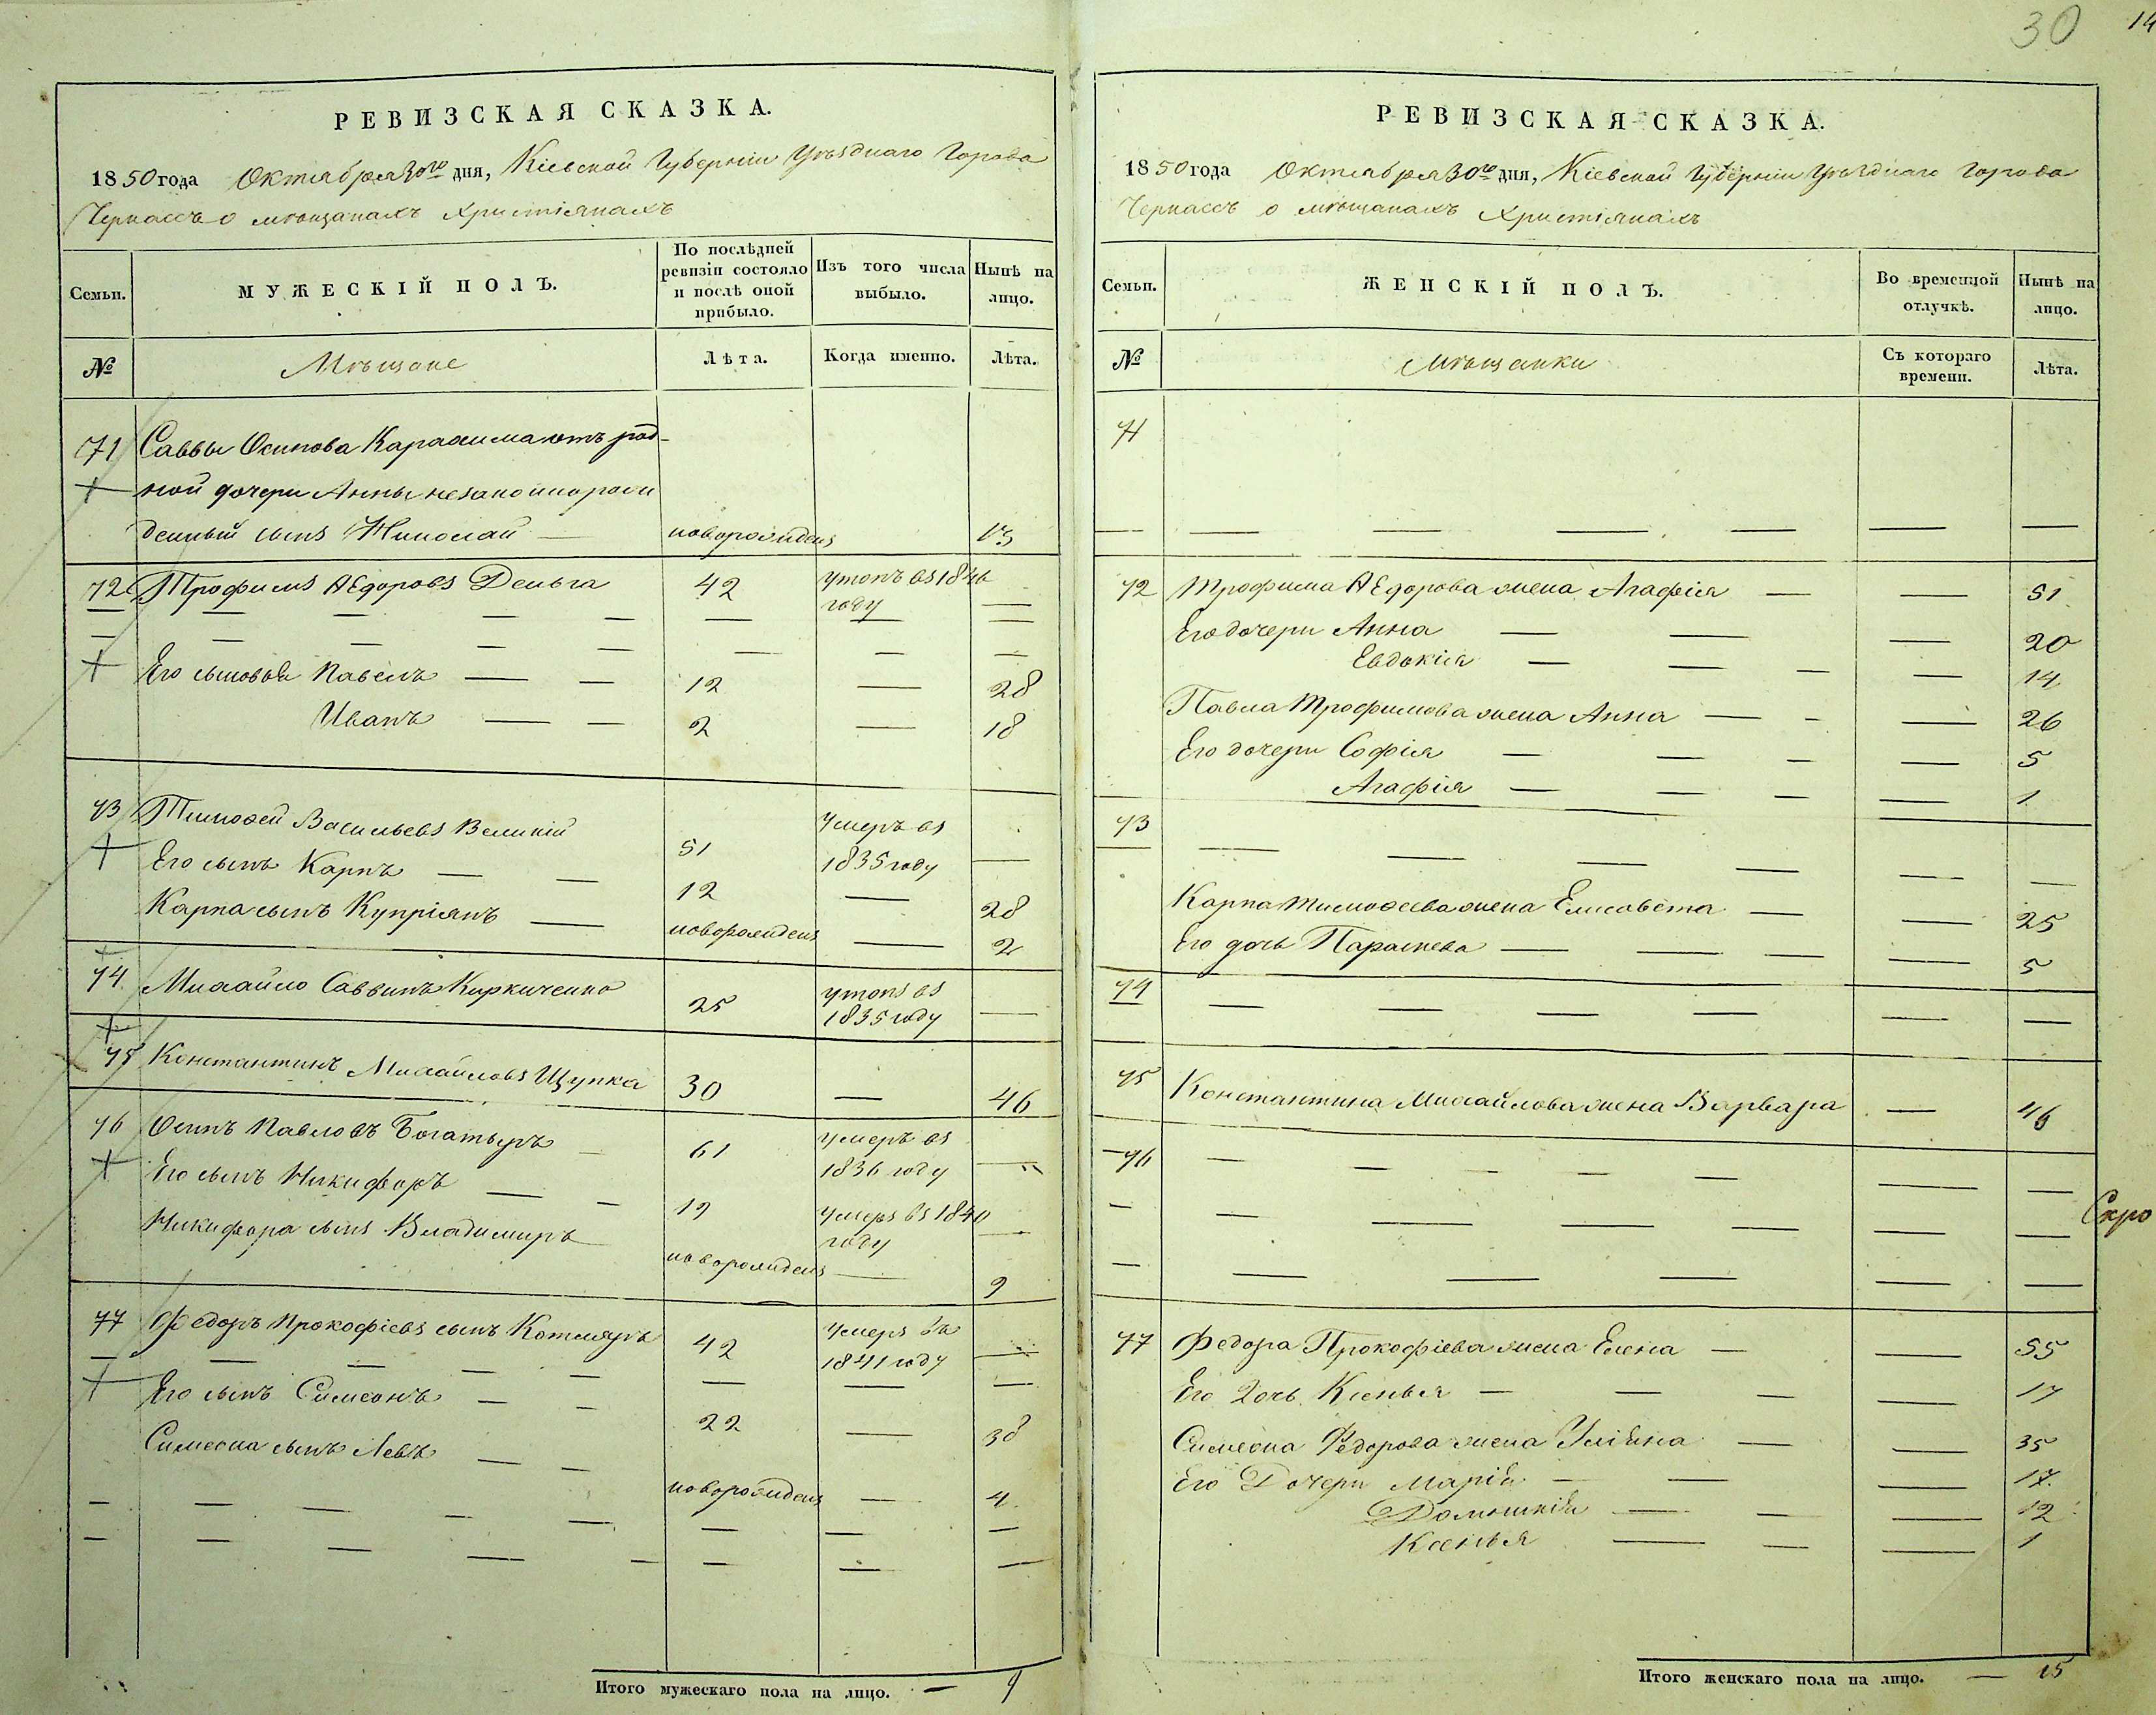 30
14
РЕВИЗСКАЯ СКАЗКА.
1850 года Октября 30го дня, Кіевской Губерніи Уѣзднаго Города
Черкассъ о мѣщанахъ Христіянахъ
Семьи.
МУЖЕСКІЙ ПОЛЪ.
По послѣдней ревизіи состояло и послѣ оной прибыло.
Изъ того числа выбыло.
Нынѣ на лицо.
№
Мѣщане
Лѣта.
Когда именно.
Лѣта.
71 Саввы Осипова отъ род-
ной дочери Анны незаконнорож
денный сынъ Николай — новорожденъ 13
72 Трофимъ Ѳедоровъ Деньга 42 утопъ въ 1846 году —
Его сыновья Павелъ — — 12 — 28
Иванъ — — 2 — 18
73 Тимофей Васильевъ Великій 51 Умеръ въ 1835 году —
Его сынъ Карпъ — — 12 — 28
Карпа сынъ Купріянъ — новорожденъ — 2
74 Михайло Саввинъ Киркиченко 25 утопъ въ 1835 году —
75 Константинъ Михайловъ Щупка 30 — 46
76 Осипъ Павловъ Богатырь 61 Умеръ въ 1836 году —
Его сынъ Никифоръ — — 19 Умеръ въ 1840 году —
Никифора сынъ Владимиръ новорожденъ — 9
77 Федоръ Прокофіевъ сынъ Котляръ 42 Умеръ въ 1841 году —
Его сынъ Симеонъ — — 22 — 38
Симеона сынъ Левъ — — новорожденъ — 4
Итого мужескаго пола на лицо. — 9
РЕВИЗСКАЯ СКАЗКА.
1850 года Октября 30го дня, Кіевской Губерніи Уѣзднаго Города
Черкассъ о мѣщанахъ Христіянахъ
Семьи.
ЖЕНСКІЙ ПОЛЪ.
Во временной отлучкѣ.
Нынѣ на лицо.
№
Мѣщанки
Съ котораго времени.
Лѣта.
71
72 Трофима Ѳедорова жена Агафія — — 51
Его дочери Анна — — — 20
Евдокія — — — — 14
Павла Трофимова жена Анна — — — 26
Его дочери Софія — — — — 5
Агафія — — — — 1
73
Карпа Тимофеева жена Елисавета — — 25
Его дочь Параскева — — — — 5
74
75 Константина Михайлова жена Варвара — 46
76
Скро
77 Федора Прокофіева жена Елена — — 55
Его Дочь Ксенья — — — — 17
Симеона Федорова жена Уліяна — — 35
Его Дочери Марія — — — 17.
Домникія — — — 12
Ксенья — — — 1
Итого женскаго пола на лицо. — 15